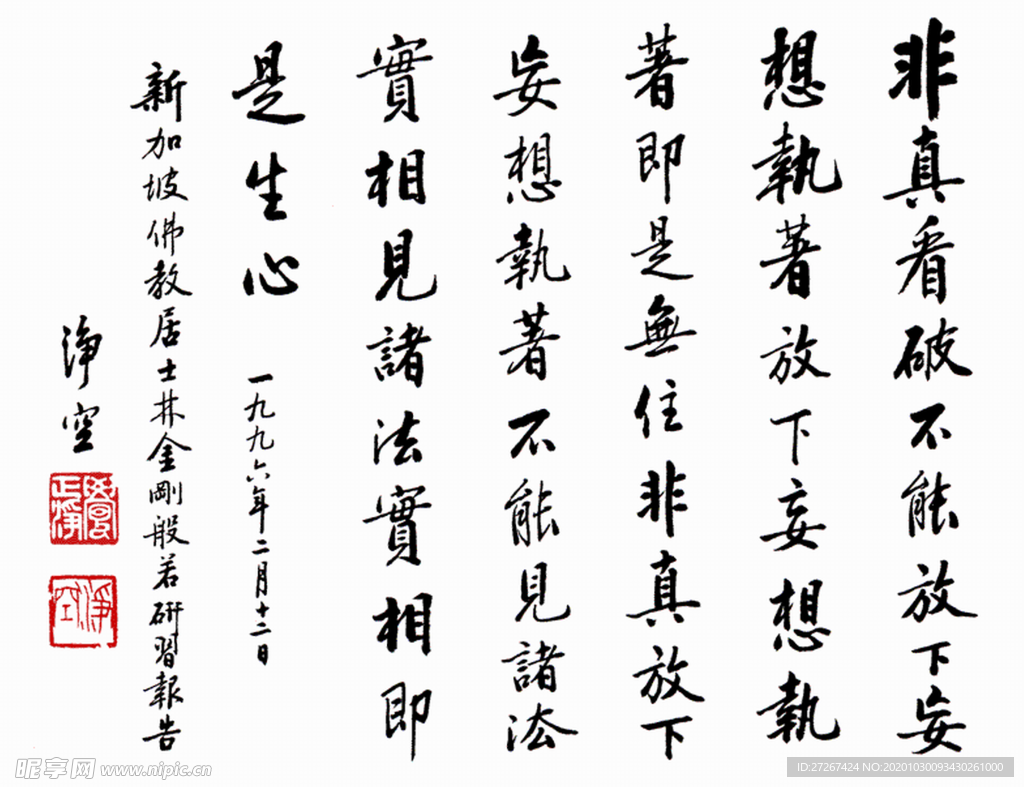 非真看破不能放下妄
想執著放下妄想執
著即是無住非真放下
妄想執著不能見諸法
實相見諸法實相即
是生心
一九九六年二月十二日
新加坡佛教居士林金剛般若研習報告
淨空
淨空
昵享网 www.nipic.cn
ID:27267424 NO:20201030093430261000